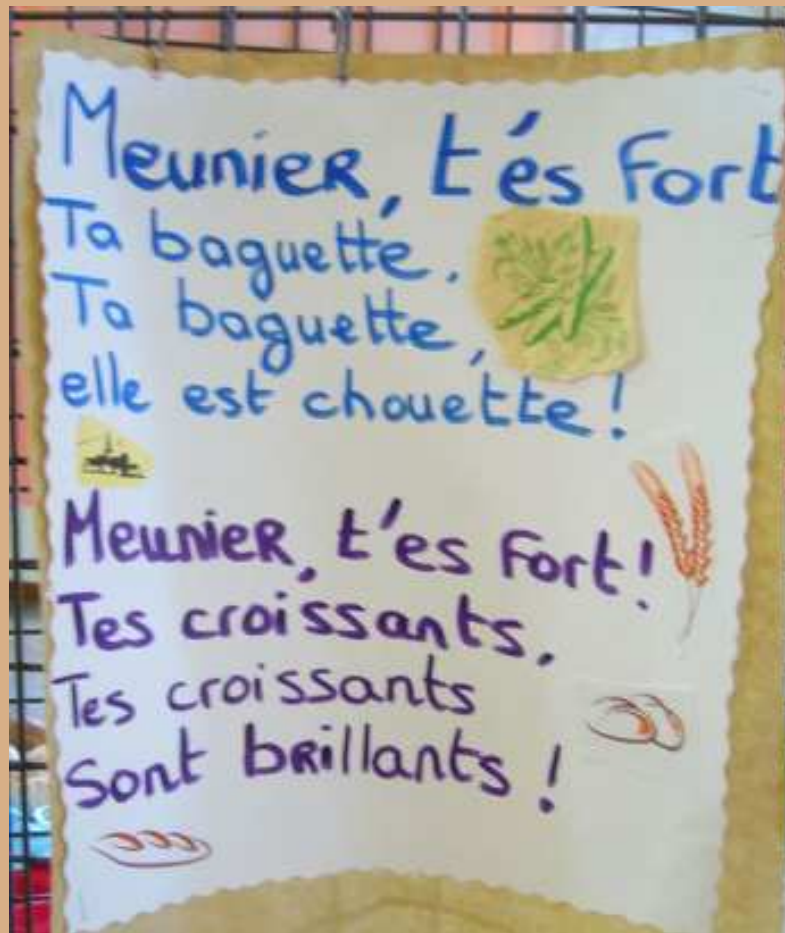 Meunier, t'és Fort
Ta baguette,
Ta baguette,
elle est chouette !
Meunier, t'es Fort !
Tes croissants,
Tes croissants
Sont brillants !